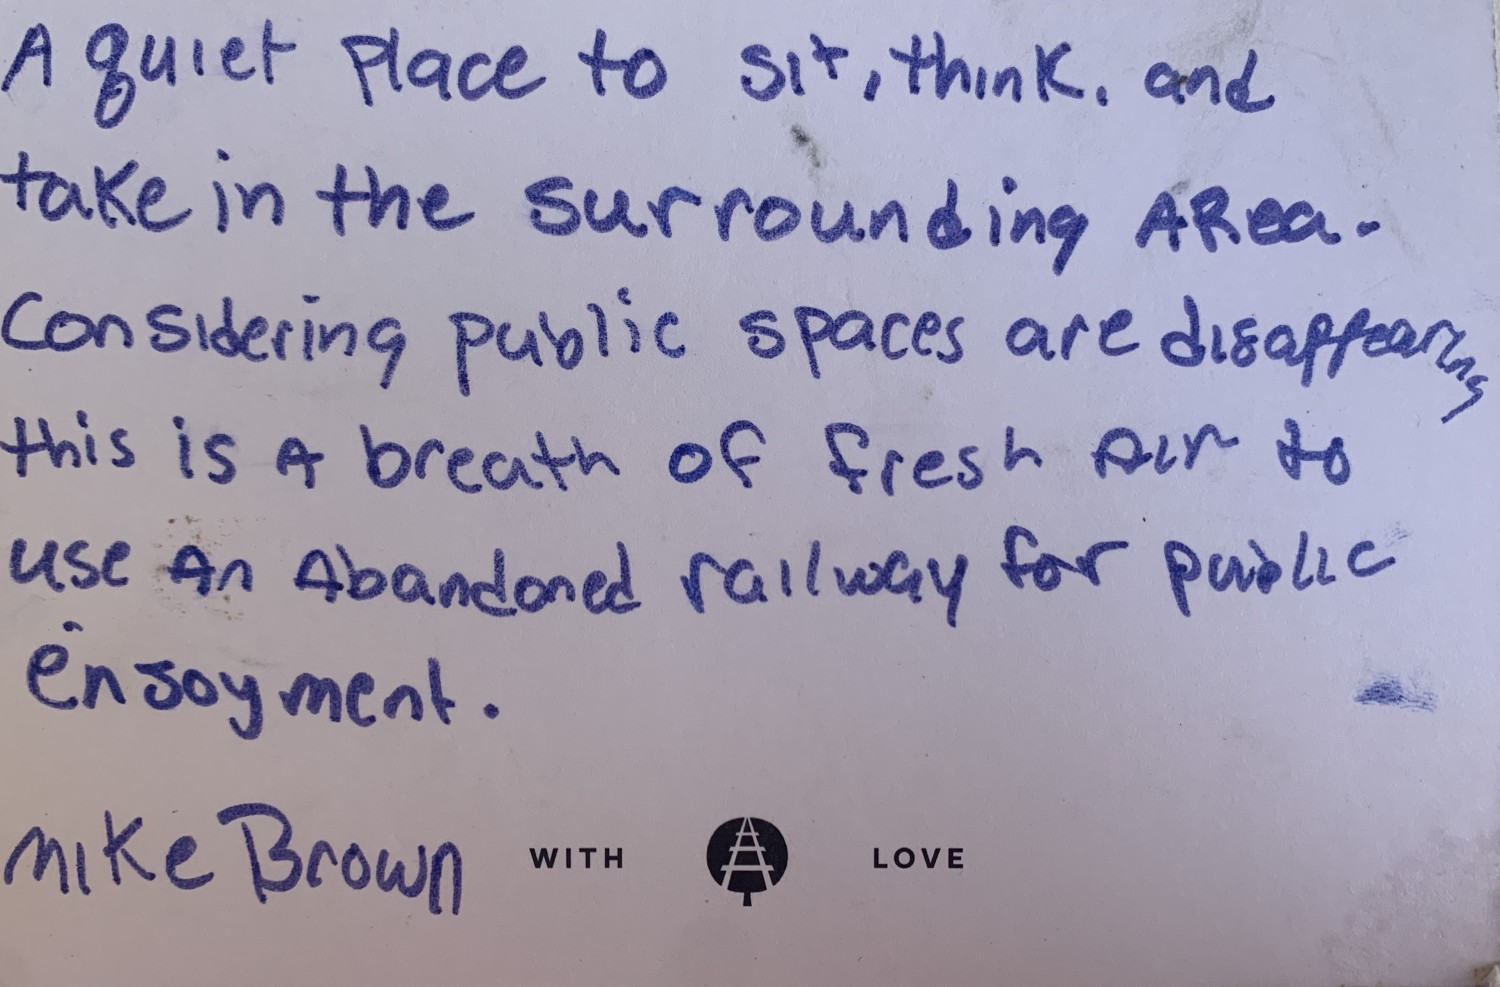 A quiet place to sit, think. and
take in the surrounding AREA.
Considering public spaces are disappearing
this is A breath of fresh Air to
use An Abandoned railway for public
enjoyment.
Mike Brown WITH LOVE